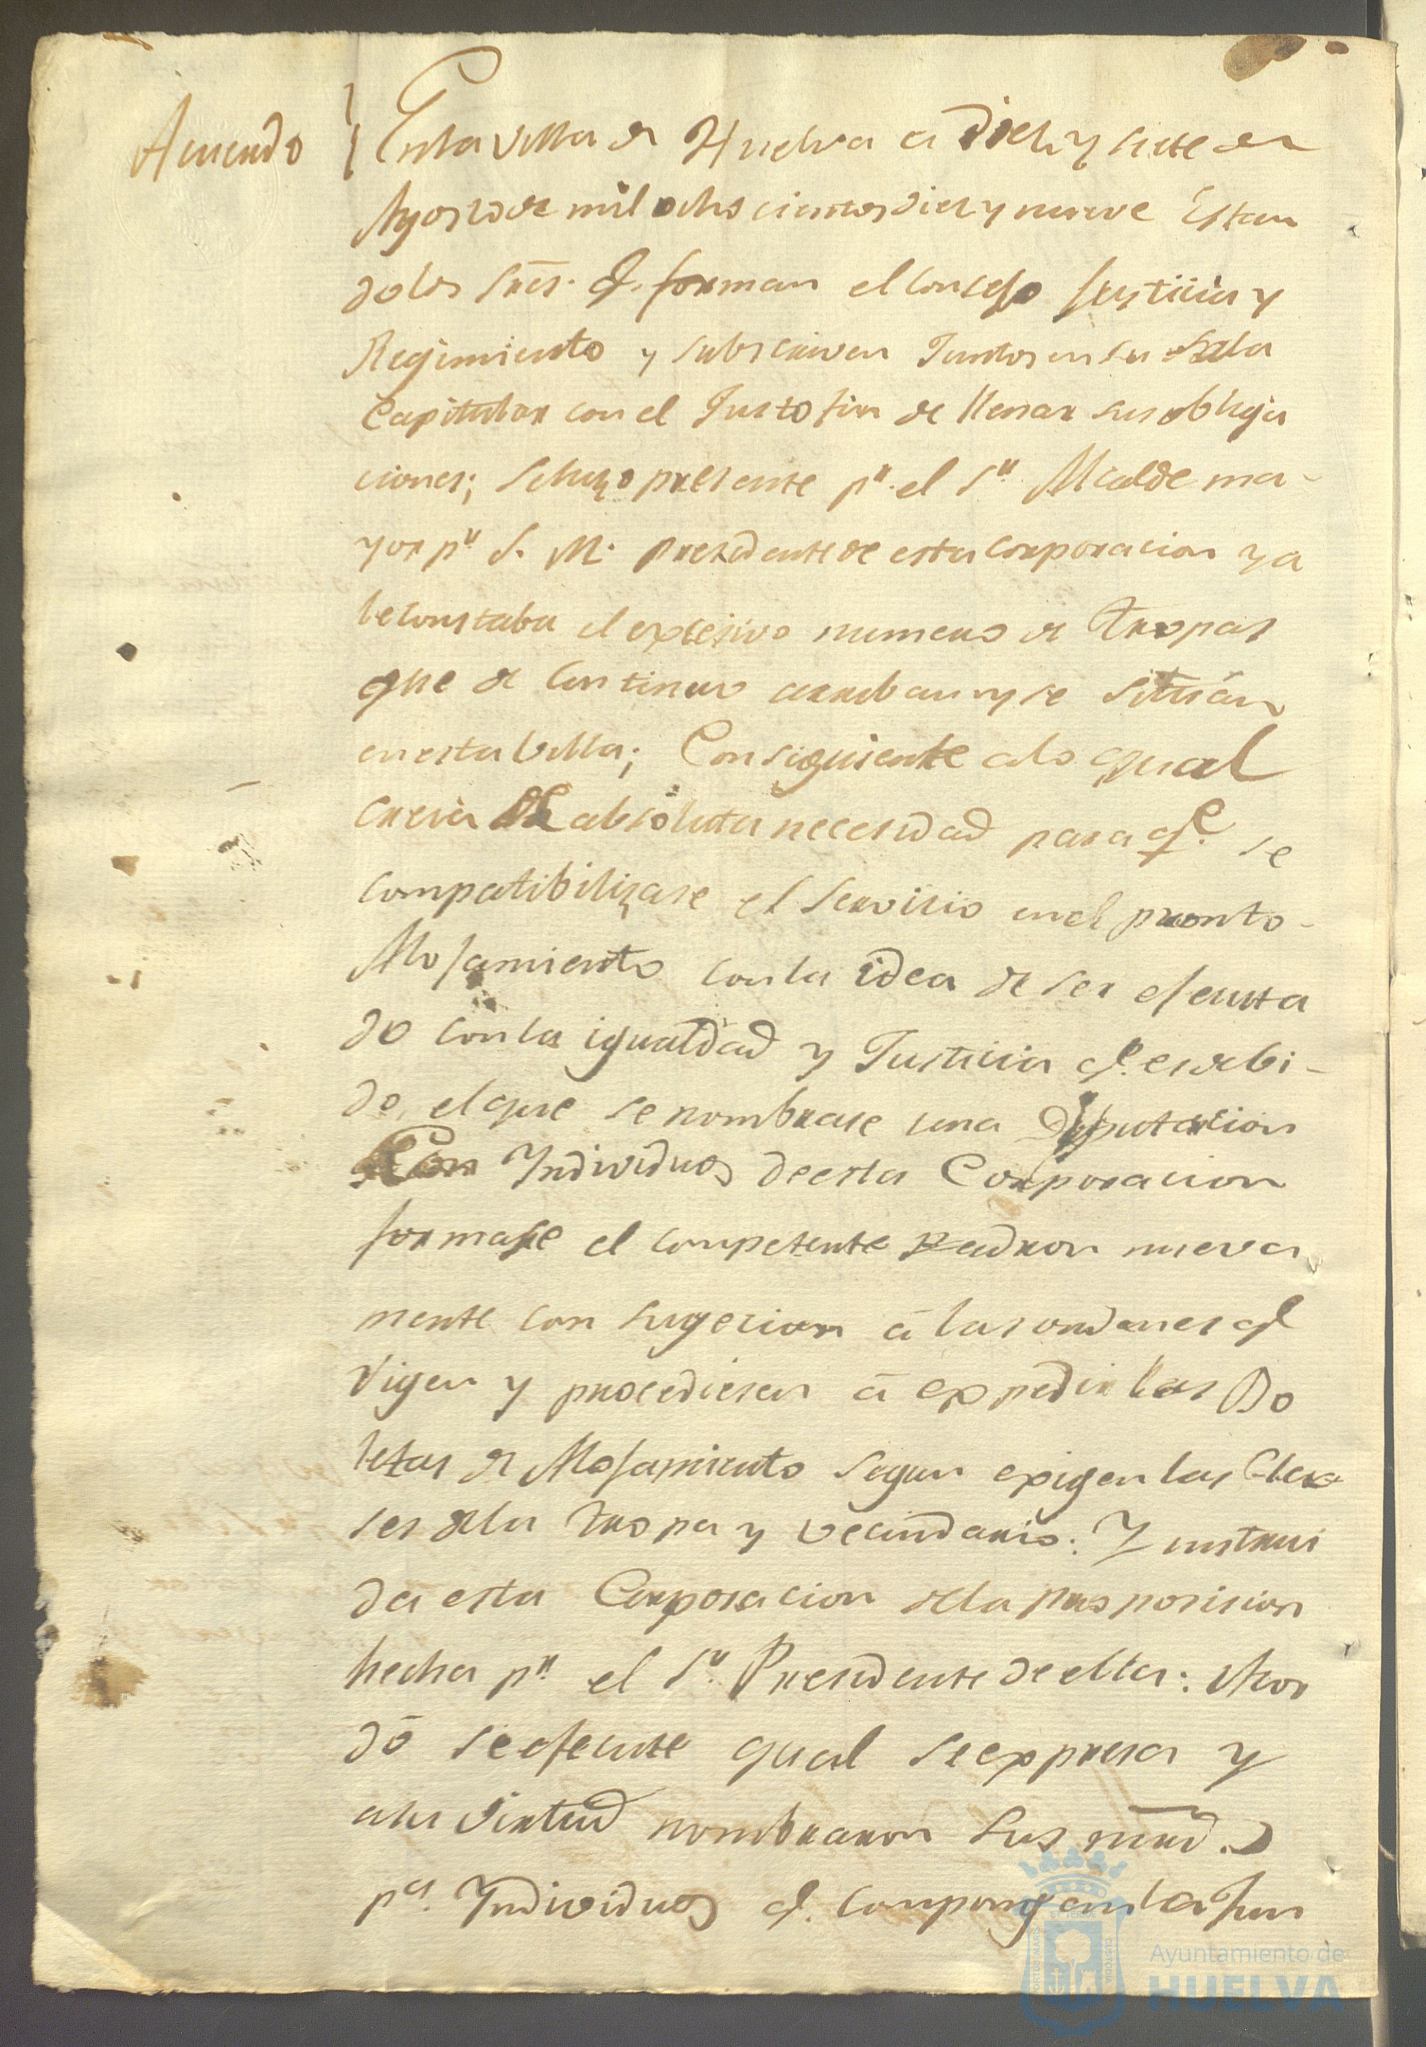 Acuerdo
En la Villa de Huelva a Diez y siete de
Agosto de mil ochocientos diez y nueve Estan
do los Sres. q. forman el Consejo Justicia y
Regimiento y subscriven Juntos en su Sala
Capitular con el Justo fin de llenar sus obliga
ciones; Se hizo presente pr. el Sr. Alcalde ma-
yor pr. S. M. presidente de esta corporacion ya
le constaba el excesivo numero de tropas
que de continuo arriban y se sitúan
en esta Villa; Consiguiente a lo qual
creia de absoluta necesidad para qe. se
compatibilizase el servicio en el pronto-
Alojamiento con la idea de ser ejecuta
do con la igualdad y Justicia q. es devi-
do, el que se nombrase una Diputacion
Con Individuos de esta Corporacion
formase el competente padron nueva
mente con sugecion á las ordenes q
Vigen y procediesen á expedir las Bo
letas de Alojamiento segun exigen las Cla
ses de la tropa y vecindario: Y instrui
da esta Corporacion de la proposicion
hecha pr. el Sr. Presidente de ella: Acor
dó se ejecute qual se expresa y
a la Virtud nombraron Sus mrd.s
pa. Individuos q. compongan la Jun
Ayuntamiento de
HUELVA